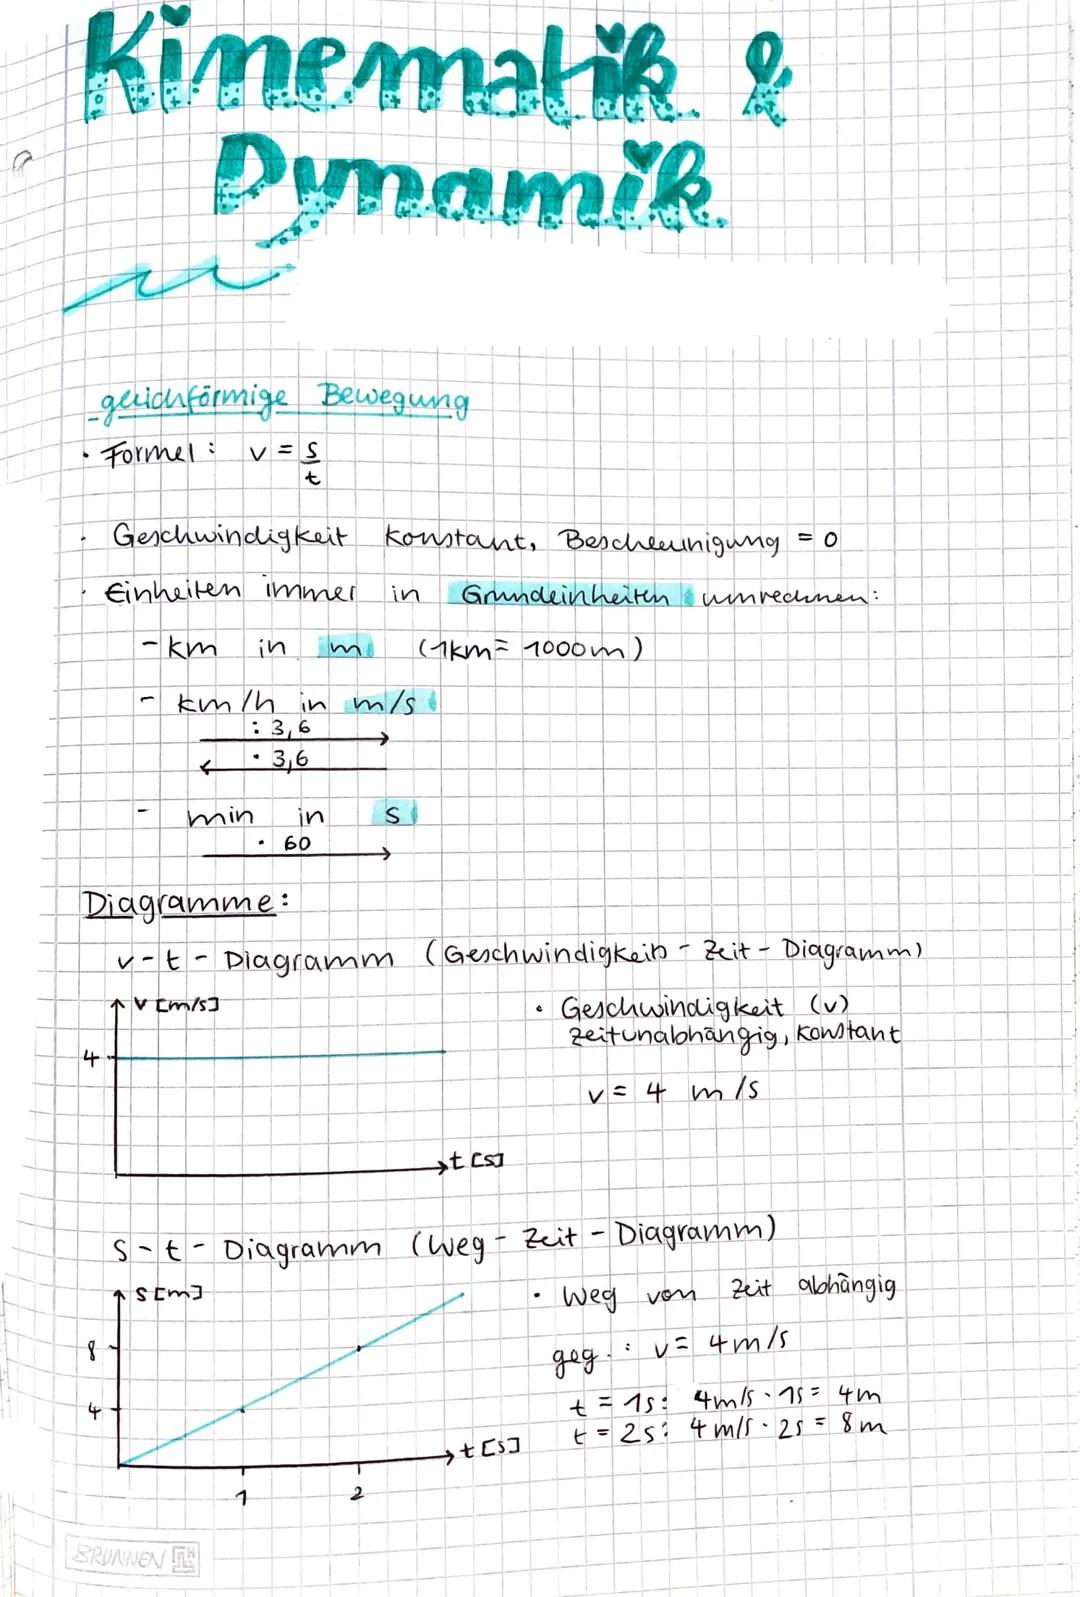 Kinematik &
Dynamik
gleichförmige Bewegung
• Formel: v = s/t
• Geschwindigkeit konstant, Beschleunigung = 0
• Einheiten immer in Grundeinheiten umrechnen:
- km in m (1km = 1000m)
- km/h in m/s
: 3,6
• 3,6
- min in s
• 60
Diagramme:
v-t-Diagramm (Geschwindigkeits-Zeit-Diagramm)
v [m/s]
4
t [s]
• Geschwindigkeit (v)
zeitunabhängig, konstant
v = 4 m/s
s-t-Diagramm (Weg-Zeit-Diagramm)
s [m]
8
4
1 2
t [s]
• Weg von Zeit abhängig
geg.: v = 4m/s
t = 1s: 4m/s · 1s = 4m
t = 2s: 4m/s · 2s = 8m
BRUNNEN